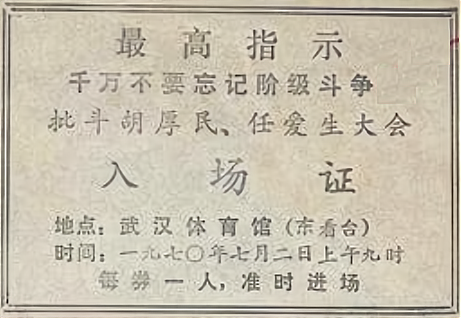 最高指示
千万不要忘记阶级斗争
批斗胡厚民、任爱生大会
入场证
地点：武汉体育馆（东看台）
时间：一九七〇年七月二日上午九时
每券一人，准时进场